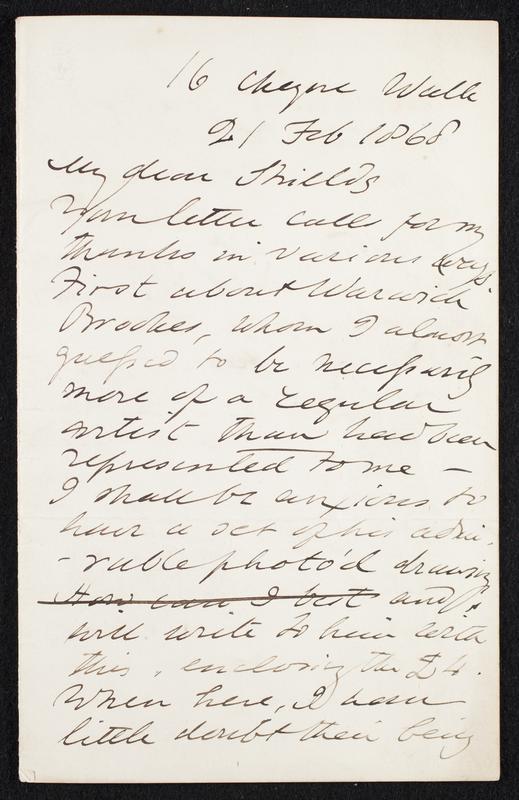 16 Cheyne Walk
21 Feb 1868
My dear Shields
Your letter calls for my
thanks in various ways.
First about Warwick
Brookes, whom I almost
guessed to be necessarily
more of a regular
artist than had been
represented to me –
I shall be anxious to
have a set of his admi-
-rable photo'd drawings
How can I best and I
will write to him with
this, enclosing the £4.
When here, I have
little doubt their being